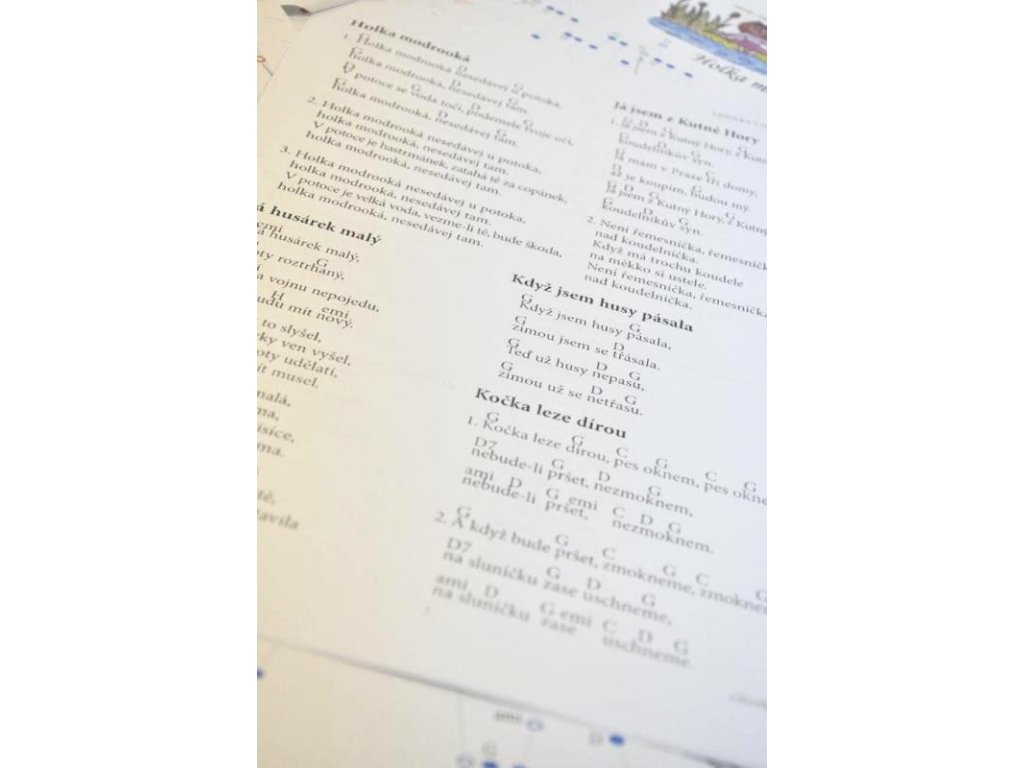 Holka modrooká
G D G
1. Holka modrooká nesedávej u potoka,
G D G
holka modrooká, nesedávej tam.
D G D G
V potoce se voda točí, podemele tvoje oči,
G D G
holka modrooká, nesedávej tam.
2. Holka modrooká nesedávej u potoka,
holka modrooká, nesedávej tam.
V potoce je hastrmánek, zatahá tě za copánek,
holka modrooká, nesedávej tam.
3. Holka modrooká nesedávej u potoka,
holka modrooká, nesedávej tam.
V potoce je velká voda, vezme-li tě, bude škoda,
holka modrooká, nesedávej tam.
husárek malý
emi
husárek malý,
G
roztrhaný,
a vojnu nepojedu,
H emi
mít nový.
to slyšel,
ven vyšel,
udělati,
musel.
Holka
Já jsem z Kutné Hory
G D G G
1. Já jsem z Kutny Hory, z
G D G
koudelníkův syn.
G
Já mám v Praze tři domy,
D G
až je koupím, budou mý.
G D G G
Já jsem z Kutny Hory, z Kutny
G D G
koudelníkův syn.
2. Není řemesnička,
nad koudelníčka.
Když má trochu koudele
na měkko si ustele.
Není řemesnička,
nad koudelníčka.
Když jsem husy pásala
G G
Když jsem husy pásala,
G D
zimou jsem se třásala.
G D G
Teď už husy nepasu,
G D G
zimou už se netřasu.
Kočka leze dírou
G G C G C G
1. Kočka leze dírou, pes oknem, pes
D7 G D G
nebude-li pršet, nezmoknem,
ami D G emi C D G
nebude-li pršet, nezmoknem.
G G C G C G
2. A když bude pršet, zmokneme,
D7 G D G
na sluníčku zase uschneme,
ami D G emi C D G
na sluníčku zase uschneme.
ami
D
G